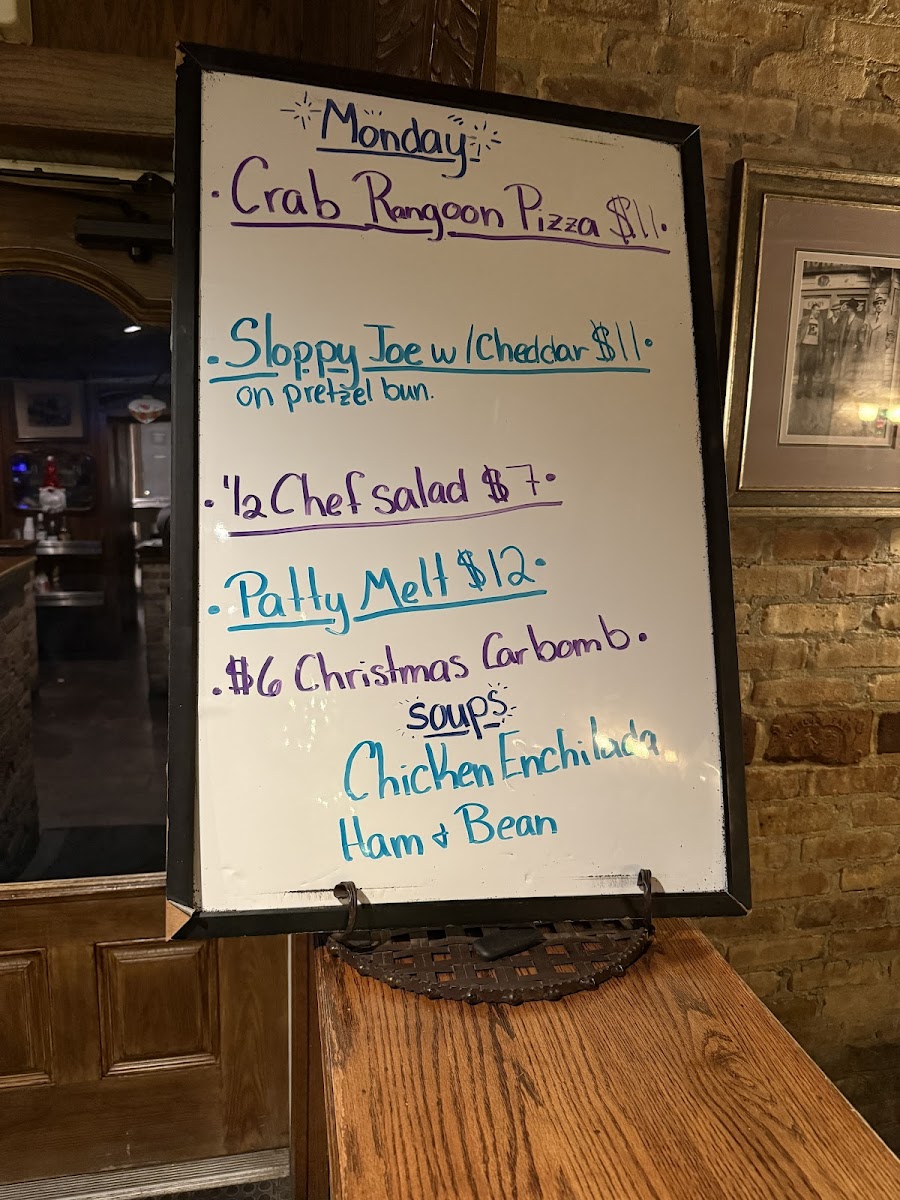 Monday
• Crab Rangoon Pizza $11•
• Sloppy Joe w/Cheddar $11•
on pretzel bun.
• 1/2 Chef salad $7•
• Patty Melt $12•
• $6 Christmas Carbomb•
soups
Chicken Enchilada
Ham & Bean